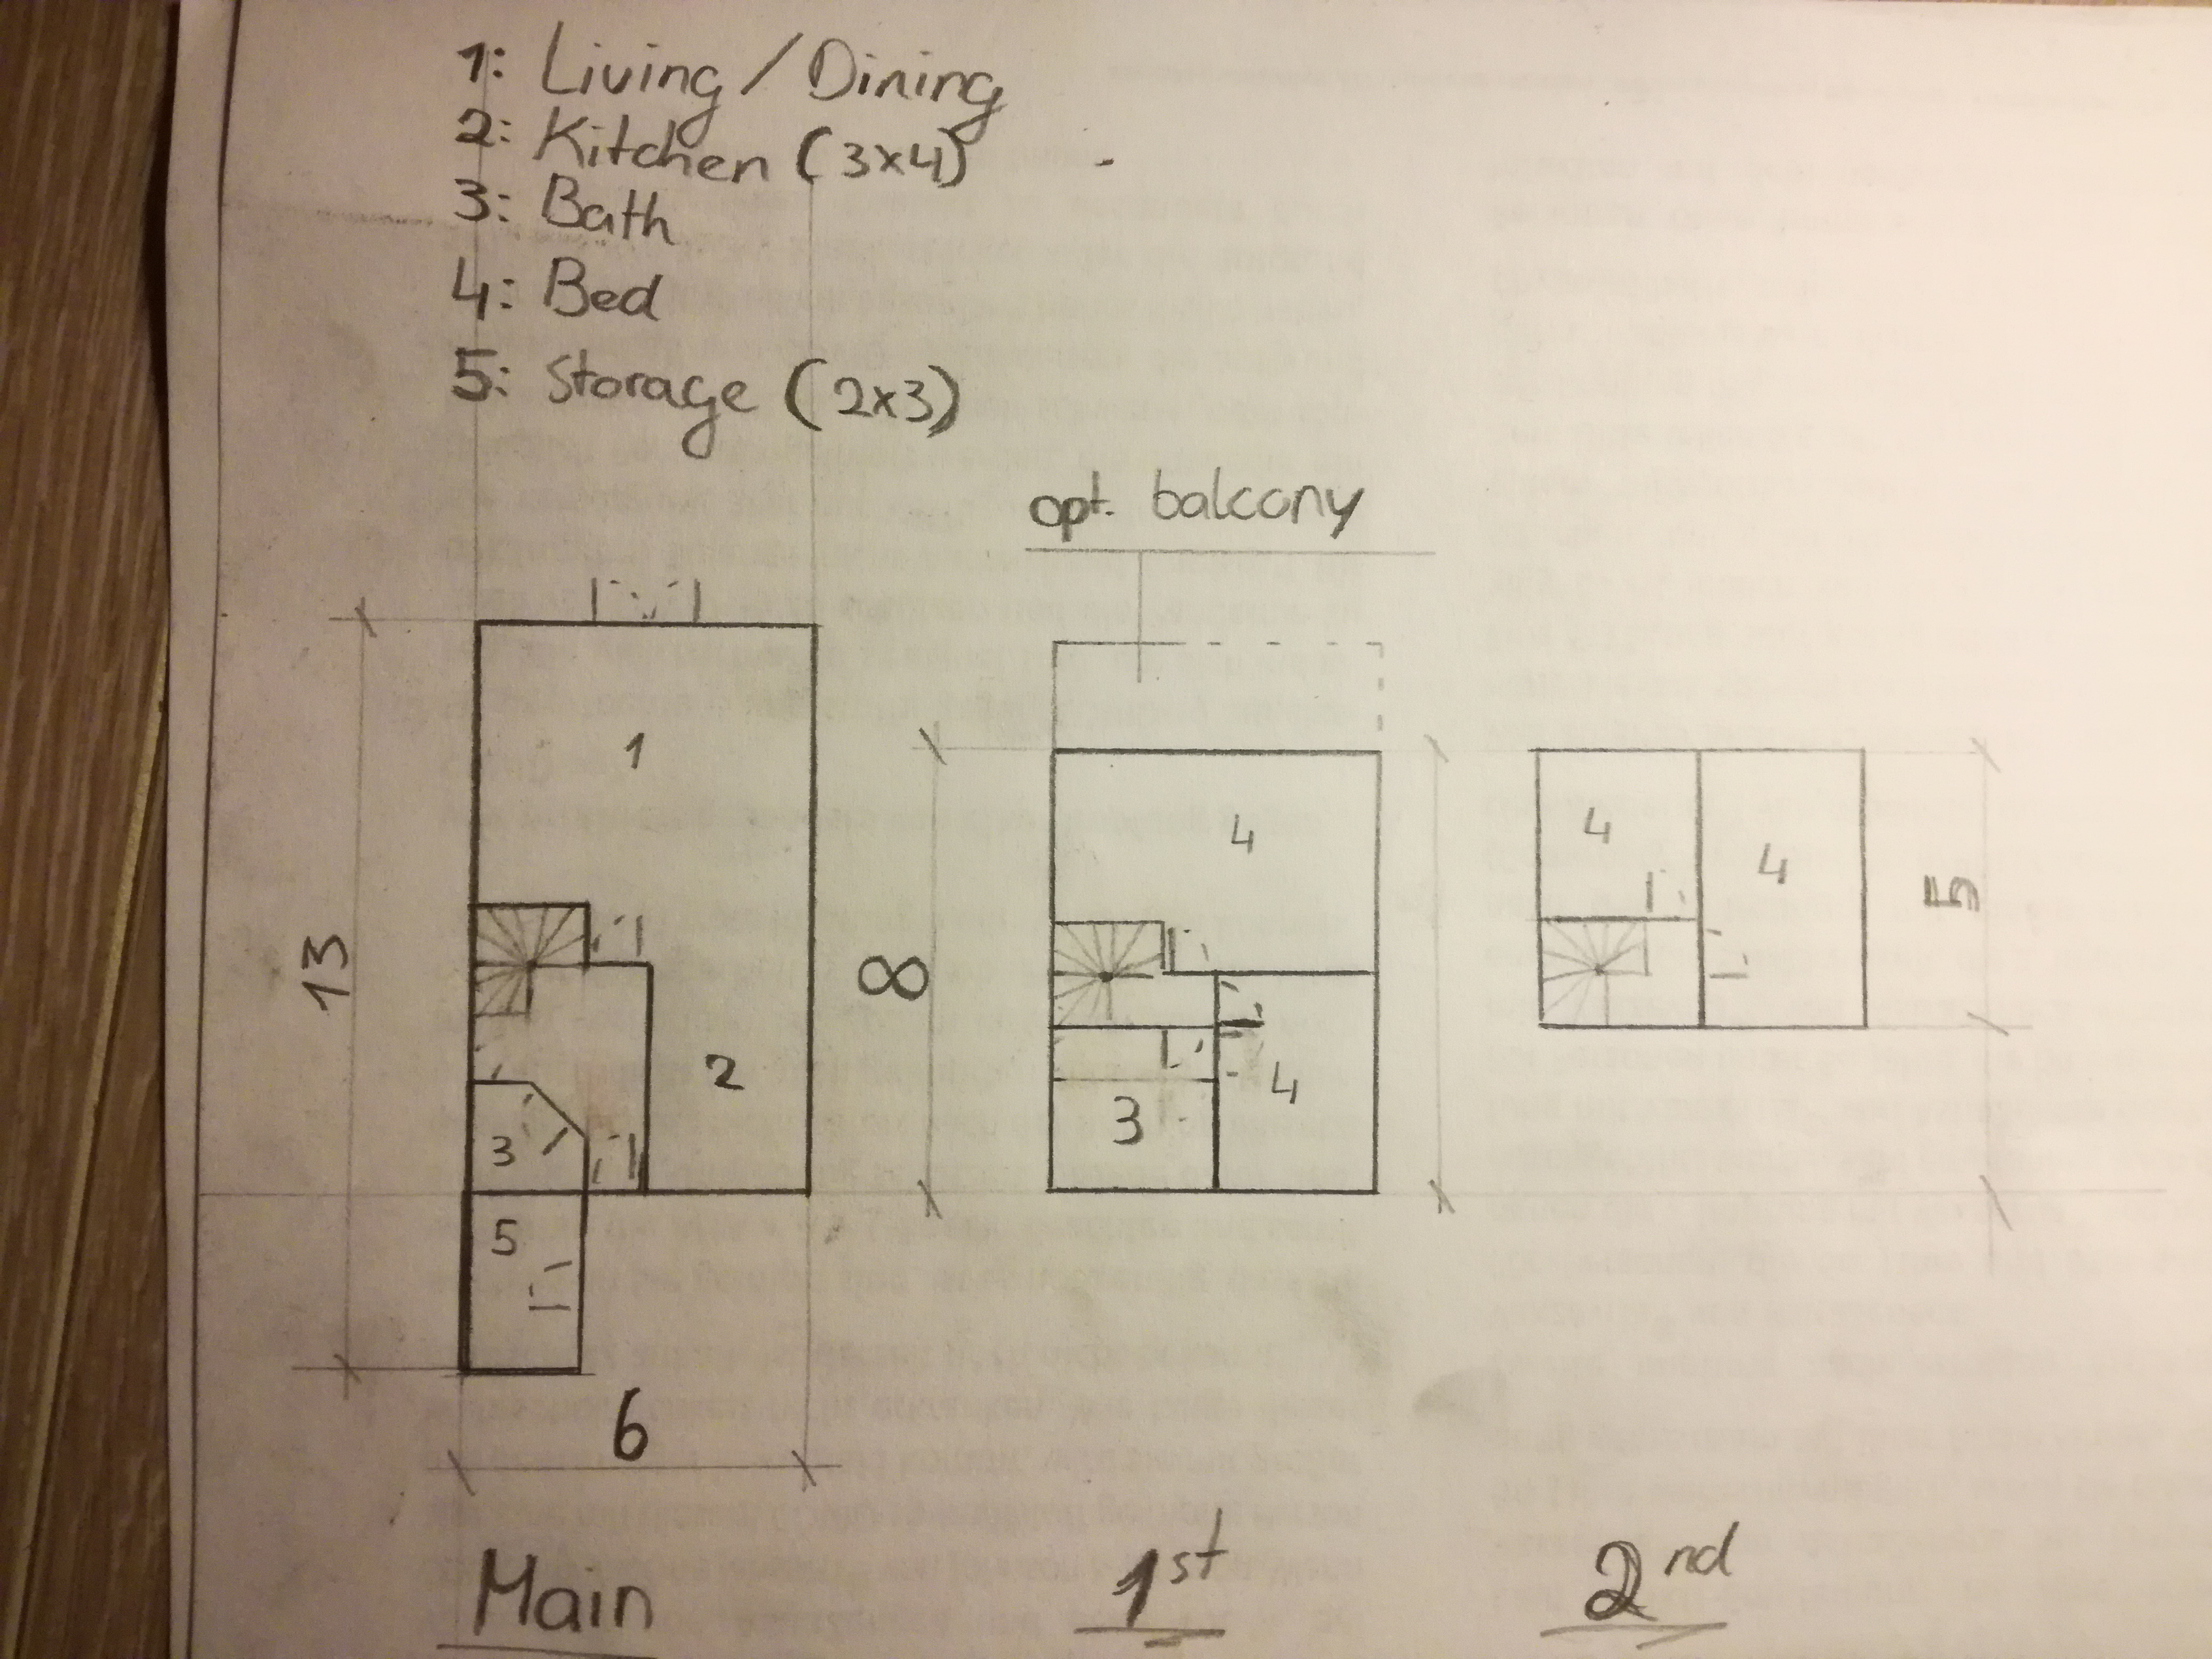 1: Living / Dining
2: Kitchen (3x4)
3: Bath
4: Bed
5: Storage (2x3)
opt. balcony
1
2
3
5
13
6
4
3
4
8
4
4
5
Main
1st
2nd